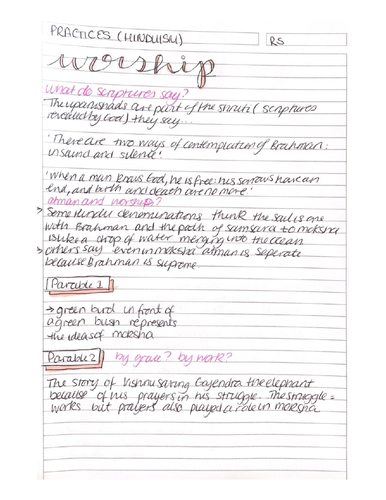 PRACTICES (HINDUISM)
RS
worship
what do scriptures say?
The upanishads are part of the shruti (scriptures
revealed by God) they say...
'There are two ways of contemplation of Brahman:
in sound and silence'.
'When a man knows God, he is free: his sorrows have an
end, and birth and death are no more'
atman and worship?
> Some Hindu denominations think the soul is one
with Brahman and the path of samsara to moksha
is like a drop of water merging into the ocean
> others say even in moksha atman is seperate
because Brahman is supreme.
Parable 1
→ green bird in front of
a green bush represents
the idea of moksha
Parable 2
by grace? by work?
The story of Vishnu saving Gajendra the elephant
because of his prayers in his struggle. The struggle =
works but prayers also played a role in moksha